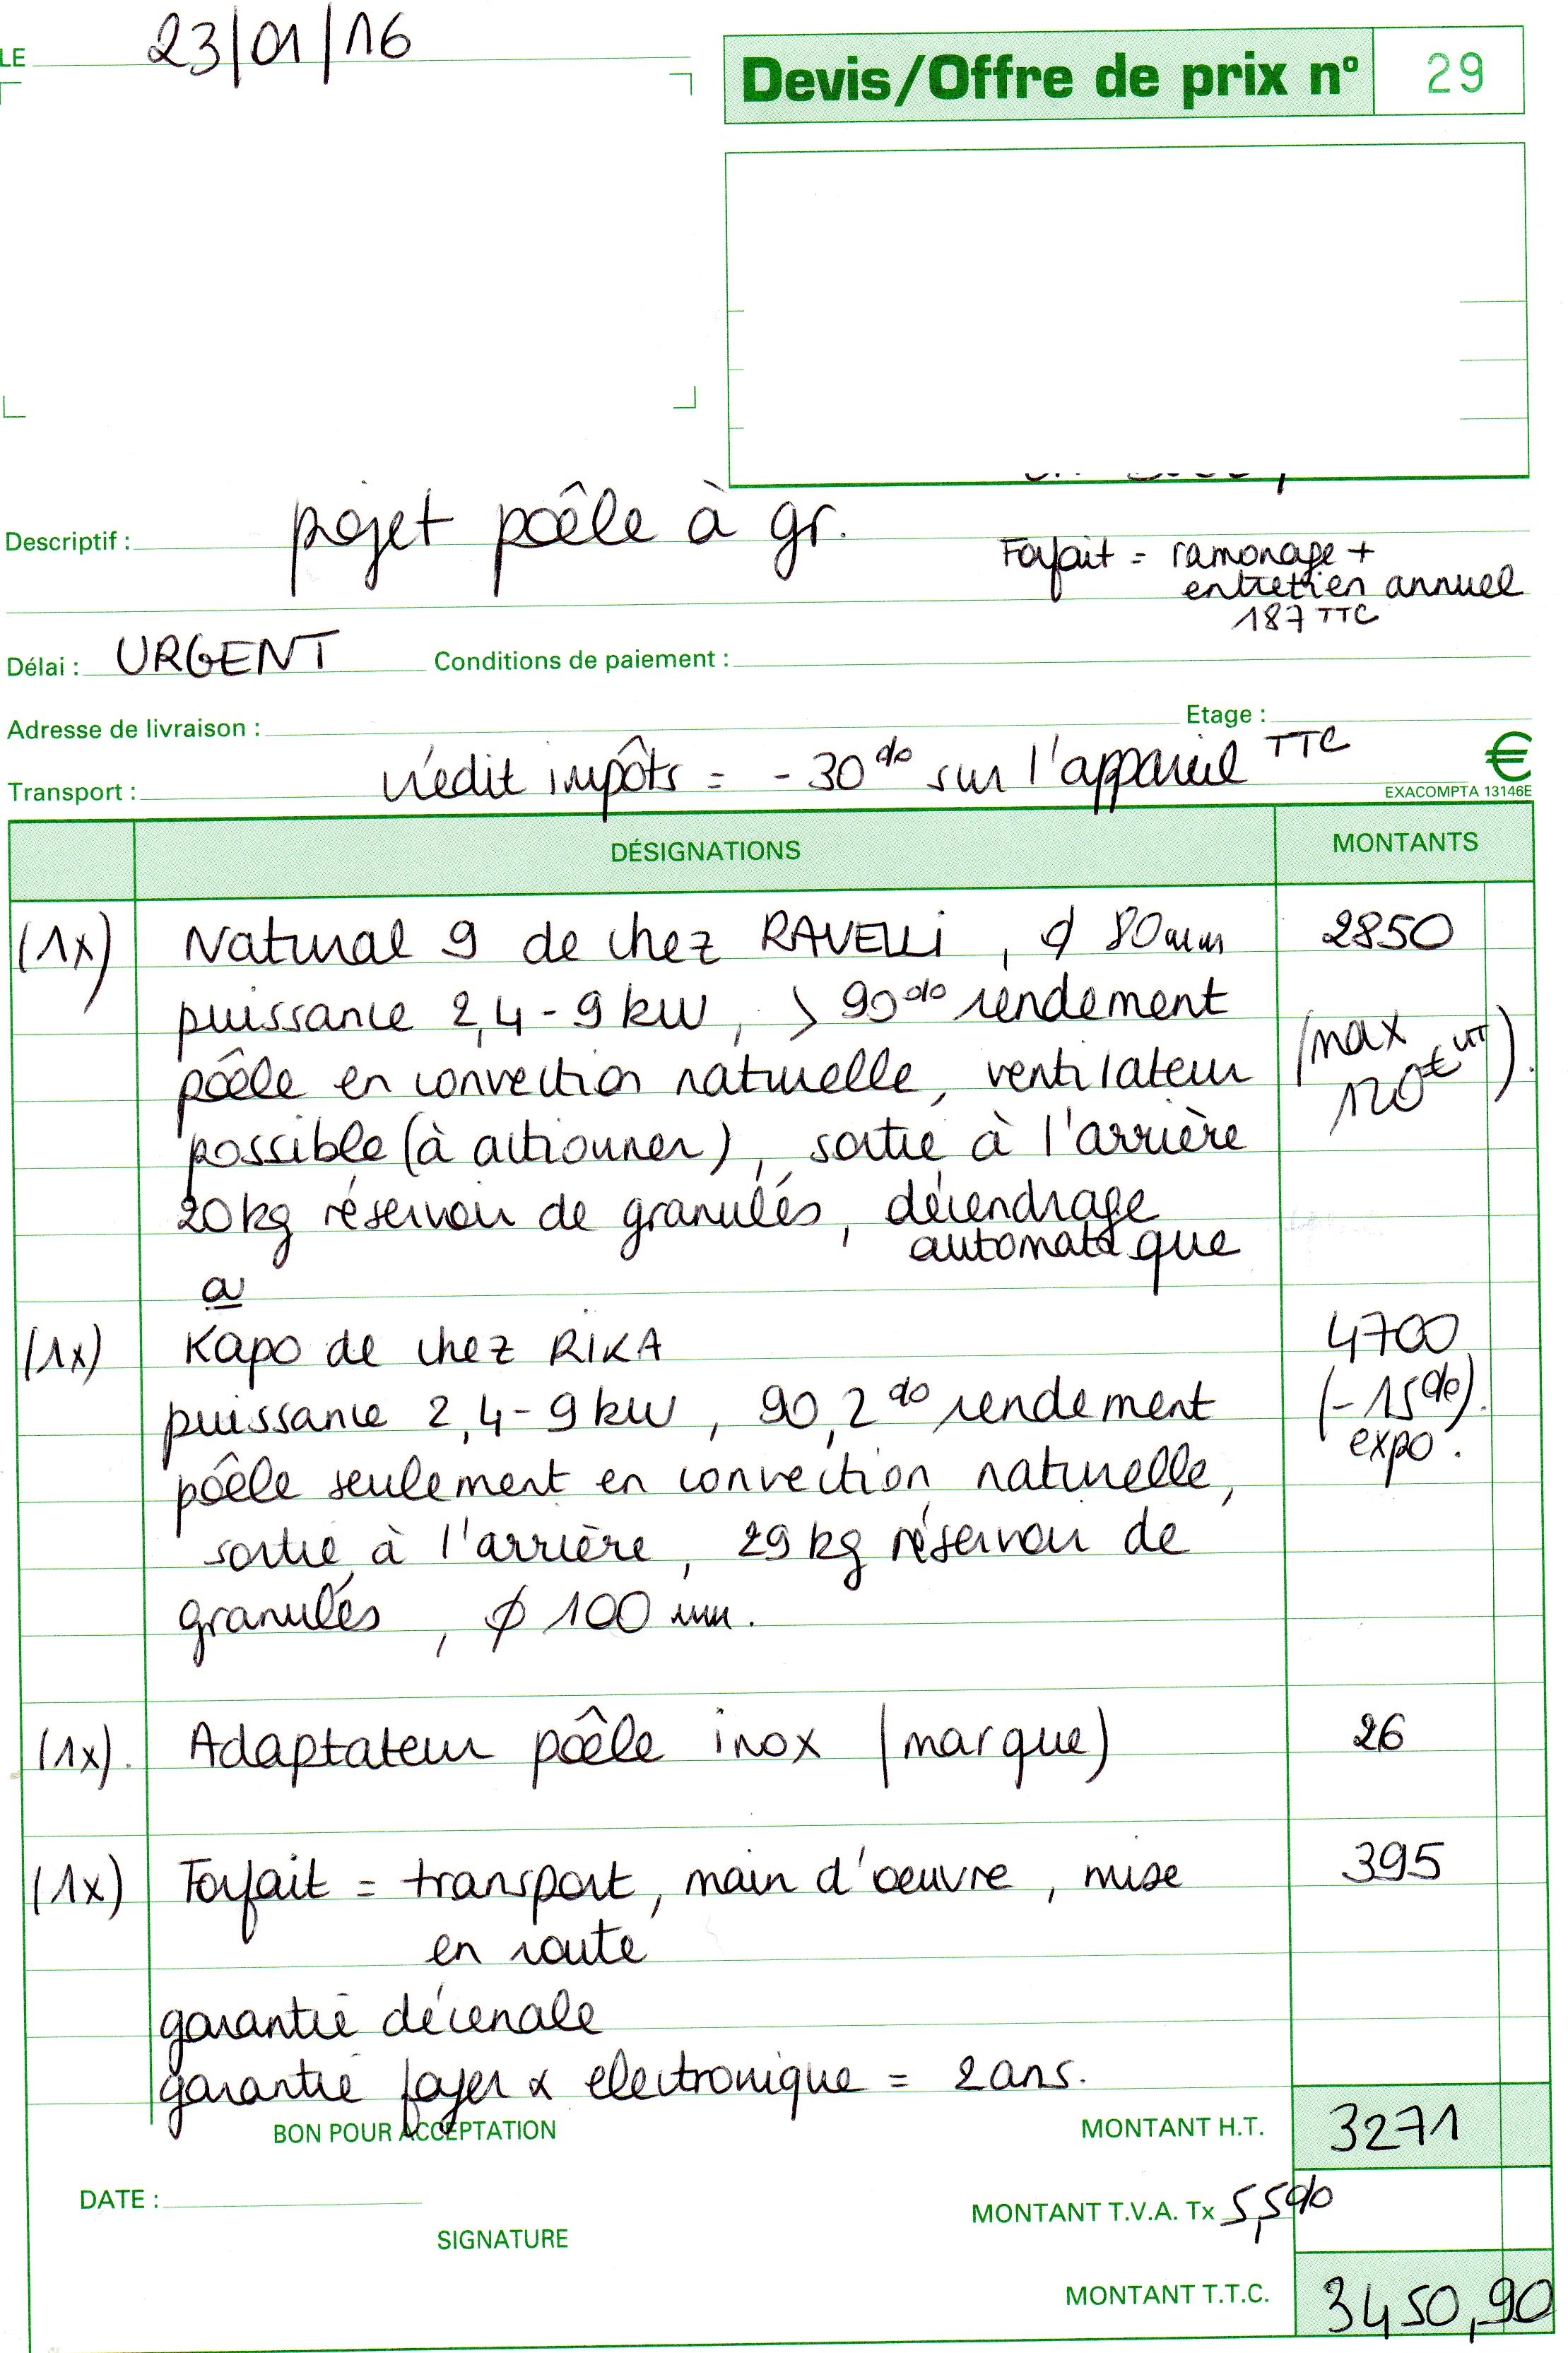 LE 23/01/16
Devis/Offre de prix n° 29
Descriptif : projet poêle à gr.
Forfait = ramonage +
entretien annuel
187 TTC
Délai : URGENT Conditions de paiement :
Adresse de livraison : Etage :
Transport : crédit impôts = -30% sur l'appareil TTC €
EXACOMPTA 13146E
DÉSIGNATIONS MONTANTS
(1x) Natural 9 de chez RAVELLi, ϕ 80mm 2850
puissance 2,4-9kW, > 90% rendement
pôêle en convection naturelle, ventilateur (max
possible (à actionner), sortie à l'arrière 120€ HT).
20kg réservoir de granulés, décendrage
automatique
(1x) Kapo de chez RIKA 4700
puissance 2,4-9kW, 90,2% rendement (-15%).
pôêle seulement en convection naturelle, expo.
sortie à l'arrière, 29kg réservoir de
granulés, ϕ 100 mm.
(1x). Adaptateur pôêle inox (marque) 26
(1x) Forfait = transport, main d'oeuvre, mise 395
en route
garantie décenale
garantie foyer & electronique = 2ans.
BON POUR ACCEPTATION MONTANT H.T. 3271
DATE : MONTANT T.V.A. Tx 5,5%
SIGNATURE
MONTANT T.T.C. 3450,90